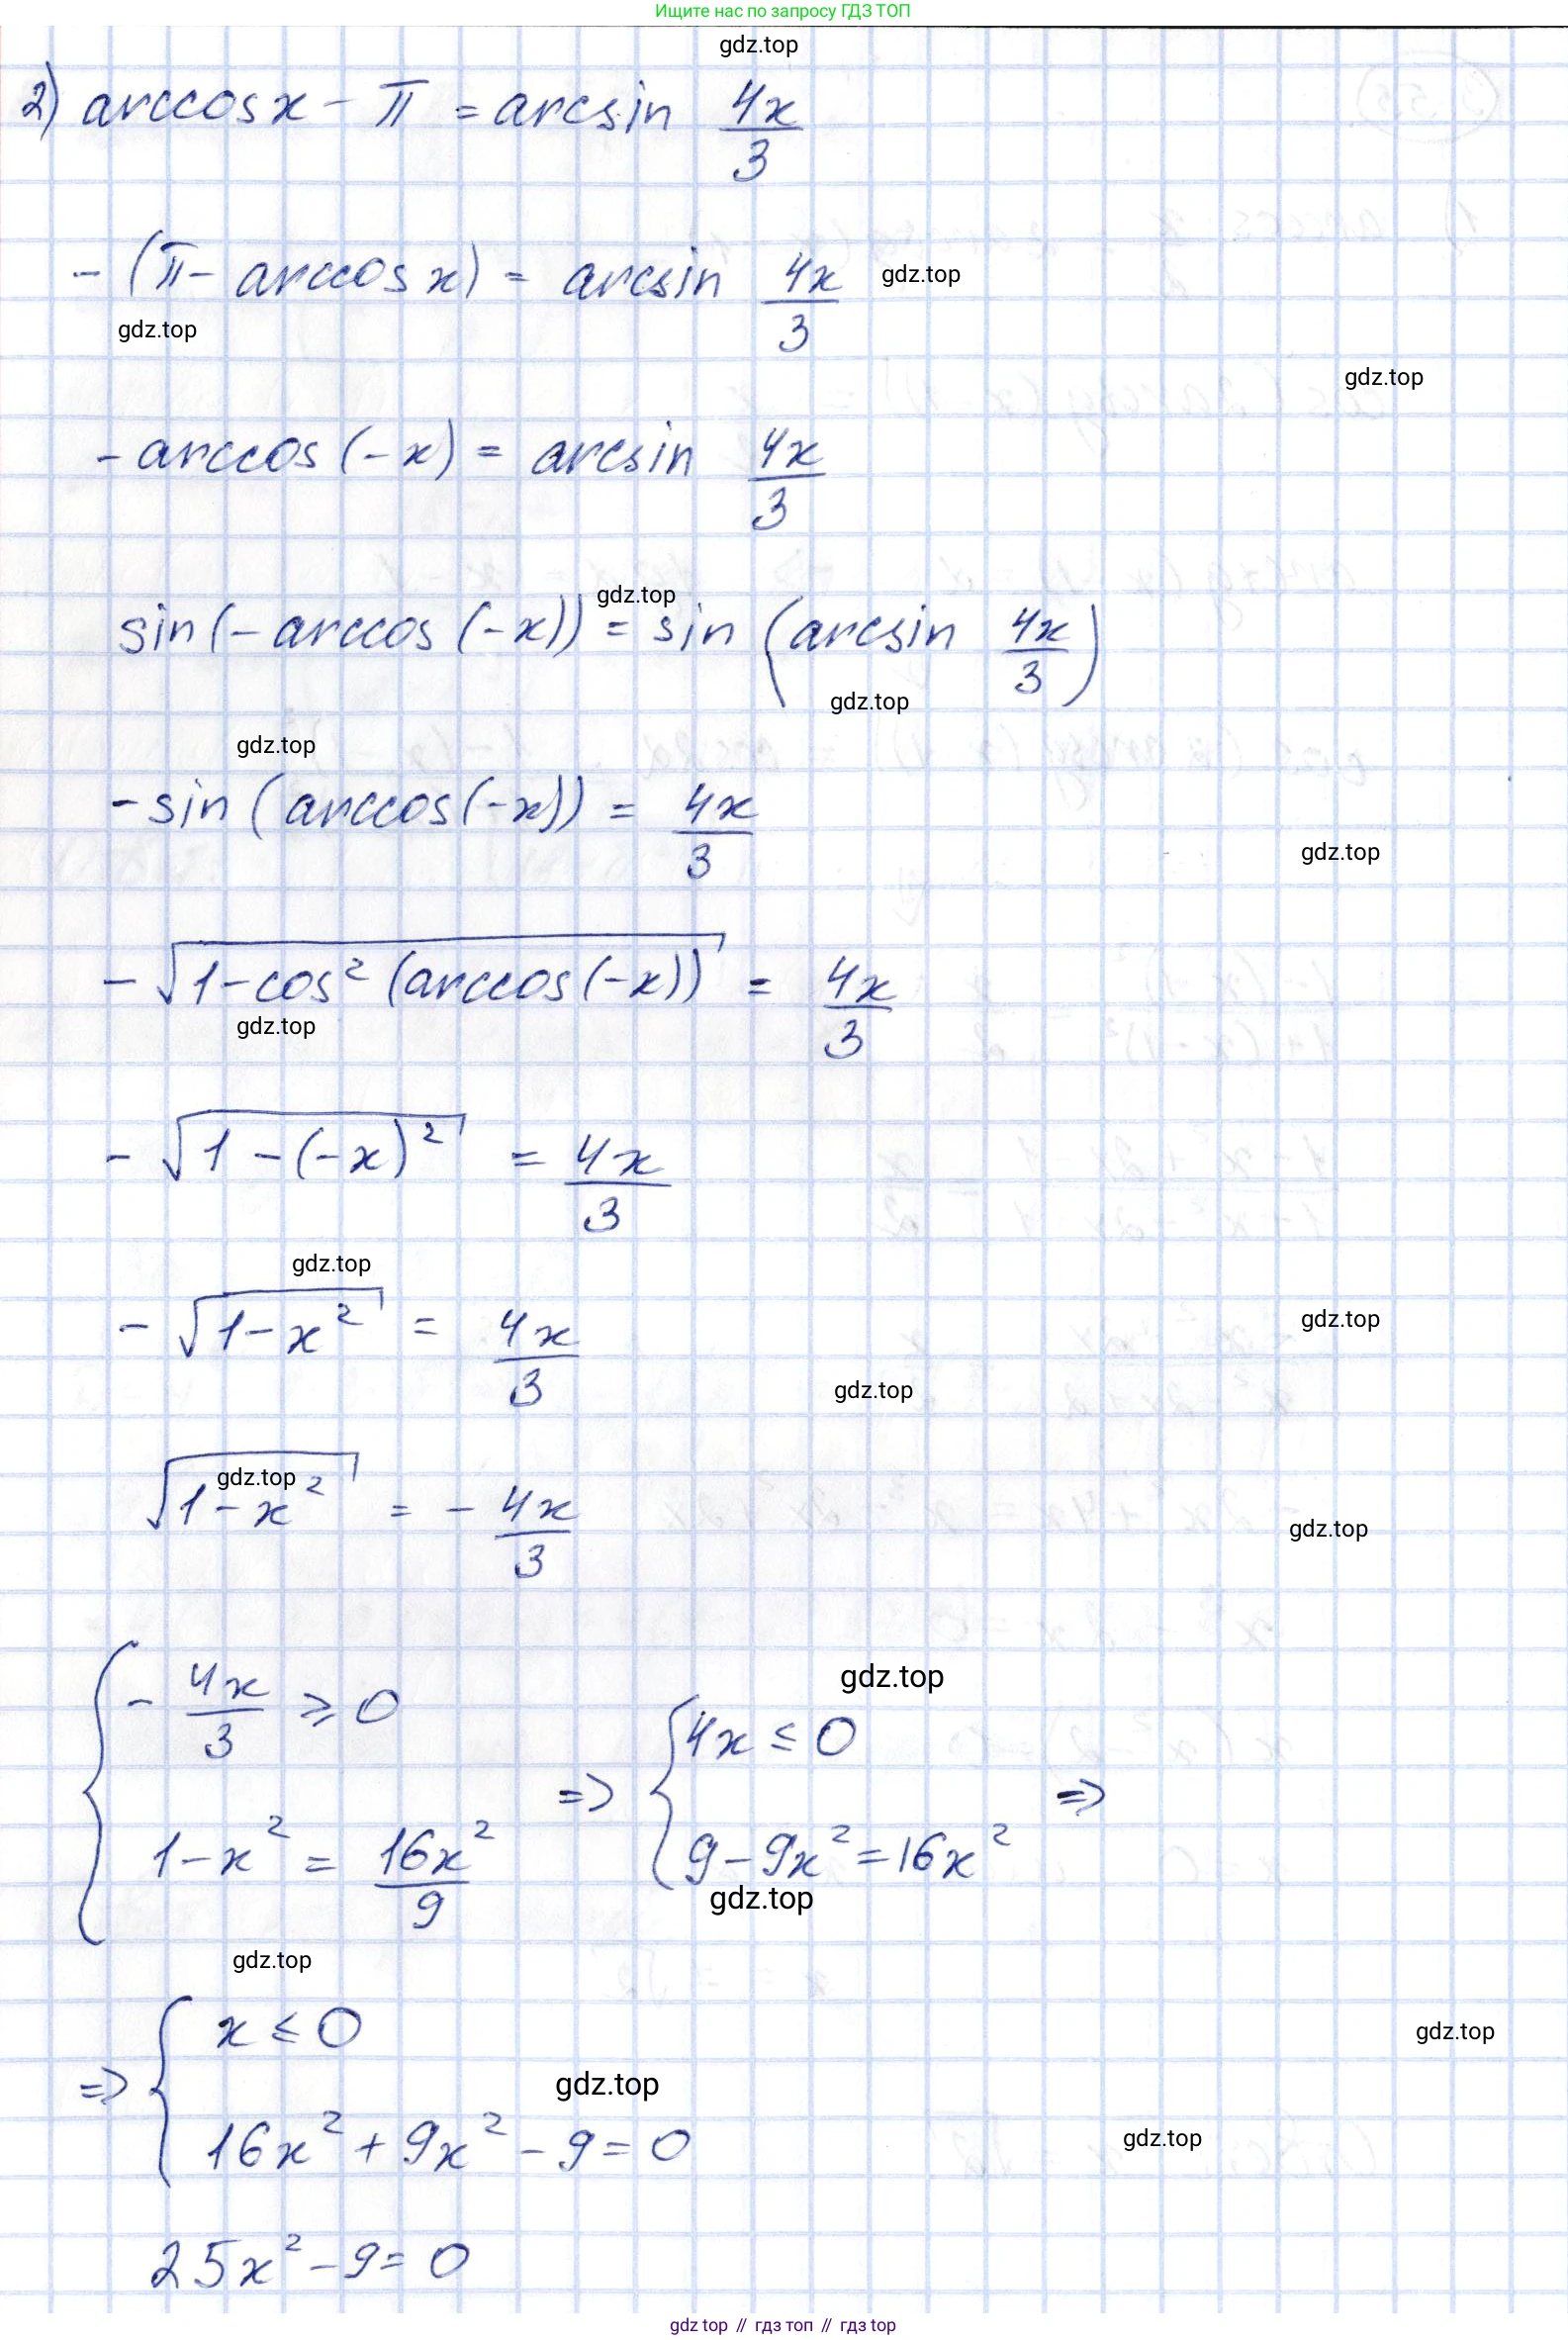 Ищите нас по запросу ГДЗ ТОП
gdz.top
2) arccos x - π = arcsin 4x/3
- (π - arccos x) = arcsin 4x/3
gdz.top
gdz.top
gdz.top
- arccos (-x) = arcsin 4x/3
gdz.top
sin (- arccos (-x)) = sin (arcsin 4x/3)
gdz.top
gdz.top
- sin (arccos (-x)) = 4x/3
gdz.top
- √(1 - cos² (arccos (-x))) = 4x/3
gdz.top
- √(1 - (-x)²) = 4x/3
gdz.top
- √(1 - x²) = 4x/3
gdz.top
gdz.top
gdz.top
√(1 - x²) = - 4x/3
gdz.top
gdz.top
{ - 4x/3 ⩾ 0
1 - x² = 16x²/9
=> { 4x ≤ 0
9 - 9x² = 16x²
=>
gdz.top
gdz.top
=> { x ≤ 0
gdz.top
gdz.top
16x² + 9x² - 9 = 0
gdz.top
25x² - 9 = 0
gdz top // гдз топ // гдз top